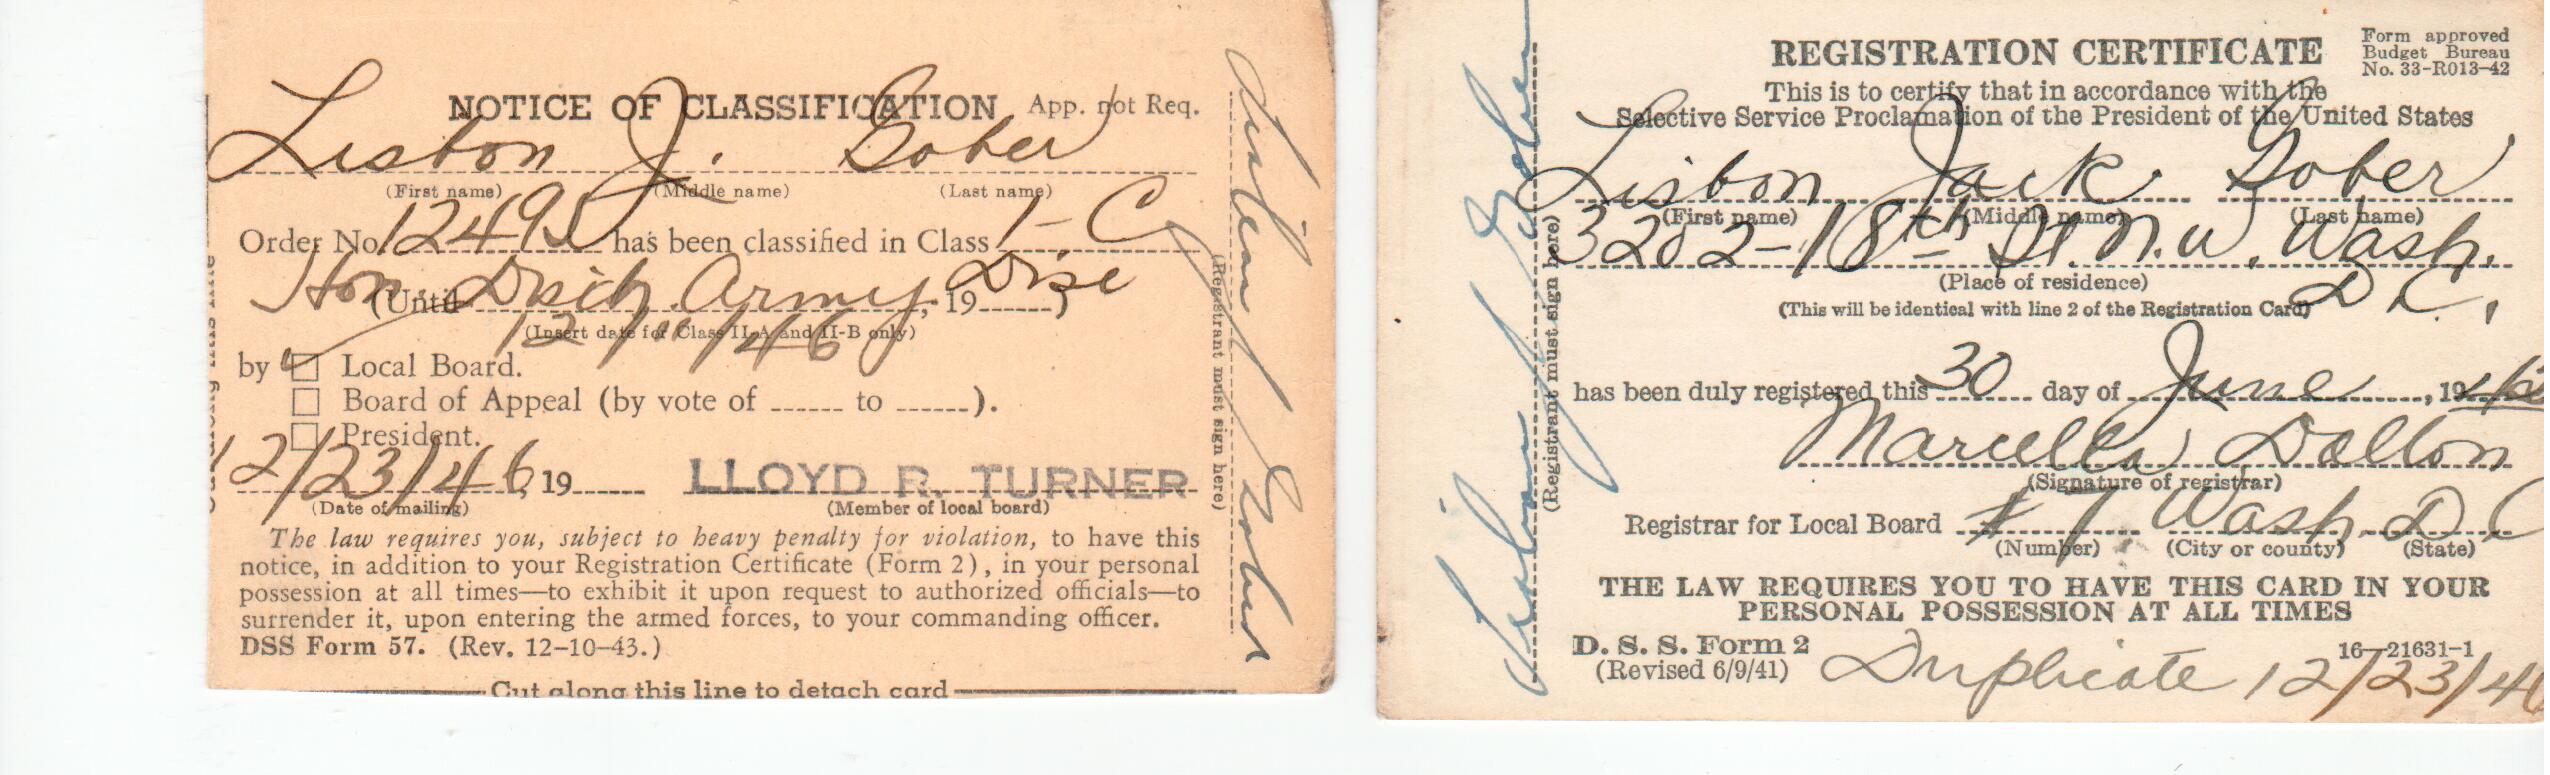 NOTICE OF CLASSIFICATION App. not Req.
Lisbon J. Gober
(First name) (Middle name) (Last name)
Order No. 12495 has been classified in Class 1-C
Hon. Disch. Army Disc
(Until , 19 )
12/ /46
(Insert date for Class II-A and II-B only)
by Local Board.
Board of Appeal (by vote of to ).
President.
12/23/46, 19 LLOYD R. TURNER
(Date of mailing) (Member of local board)
The law requires you, subject to heavy penalty for violation, to have this
notice, in addition to your Registration Certificate (Form 2), in your personal
possession at all times—to exhibit it upon request to authorized officials—to
surrender it, upon entering the armed forces, to your commanding officer.
DSS Form 57. (Rev. 12-10-43.)
Cut along this line to detach card
(Registrant must sign here)
Lisbon J Gober
REGISTRATION CERTIFICATE
Form approved
Budget Bureau
No. 33-R013-42
This is to certify that in accordance with the
Selective Service Proclamation of the President of the United States
Lisbon Jack Gober
(First name) (Middle name) (Last name)
3202-18th St. N.W. Wash.
D.C.
(Place of residence)
(This will be identical with line 2 of the Registration Card)
has been duly registered this 30 day of June, 19
Marcella Dalton
(Signature of registrar)
Registrar for Local Board #7 Wash. D C
(Number) (City or county) (State)
THE LAW REQUIRES YOU TO HAVE THIS CARD IN YOUR
PERSONAL POSSESSION AT ALL TIMES
D. S. S. Form 2
(Revised 6/9/41)
16—21631-1
Duplicate 12/23/46
(Registrant must sign here)
Lisbon J Gober